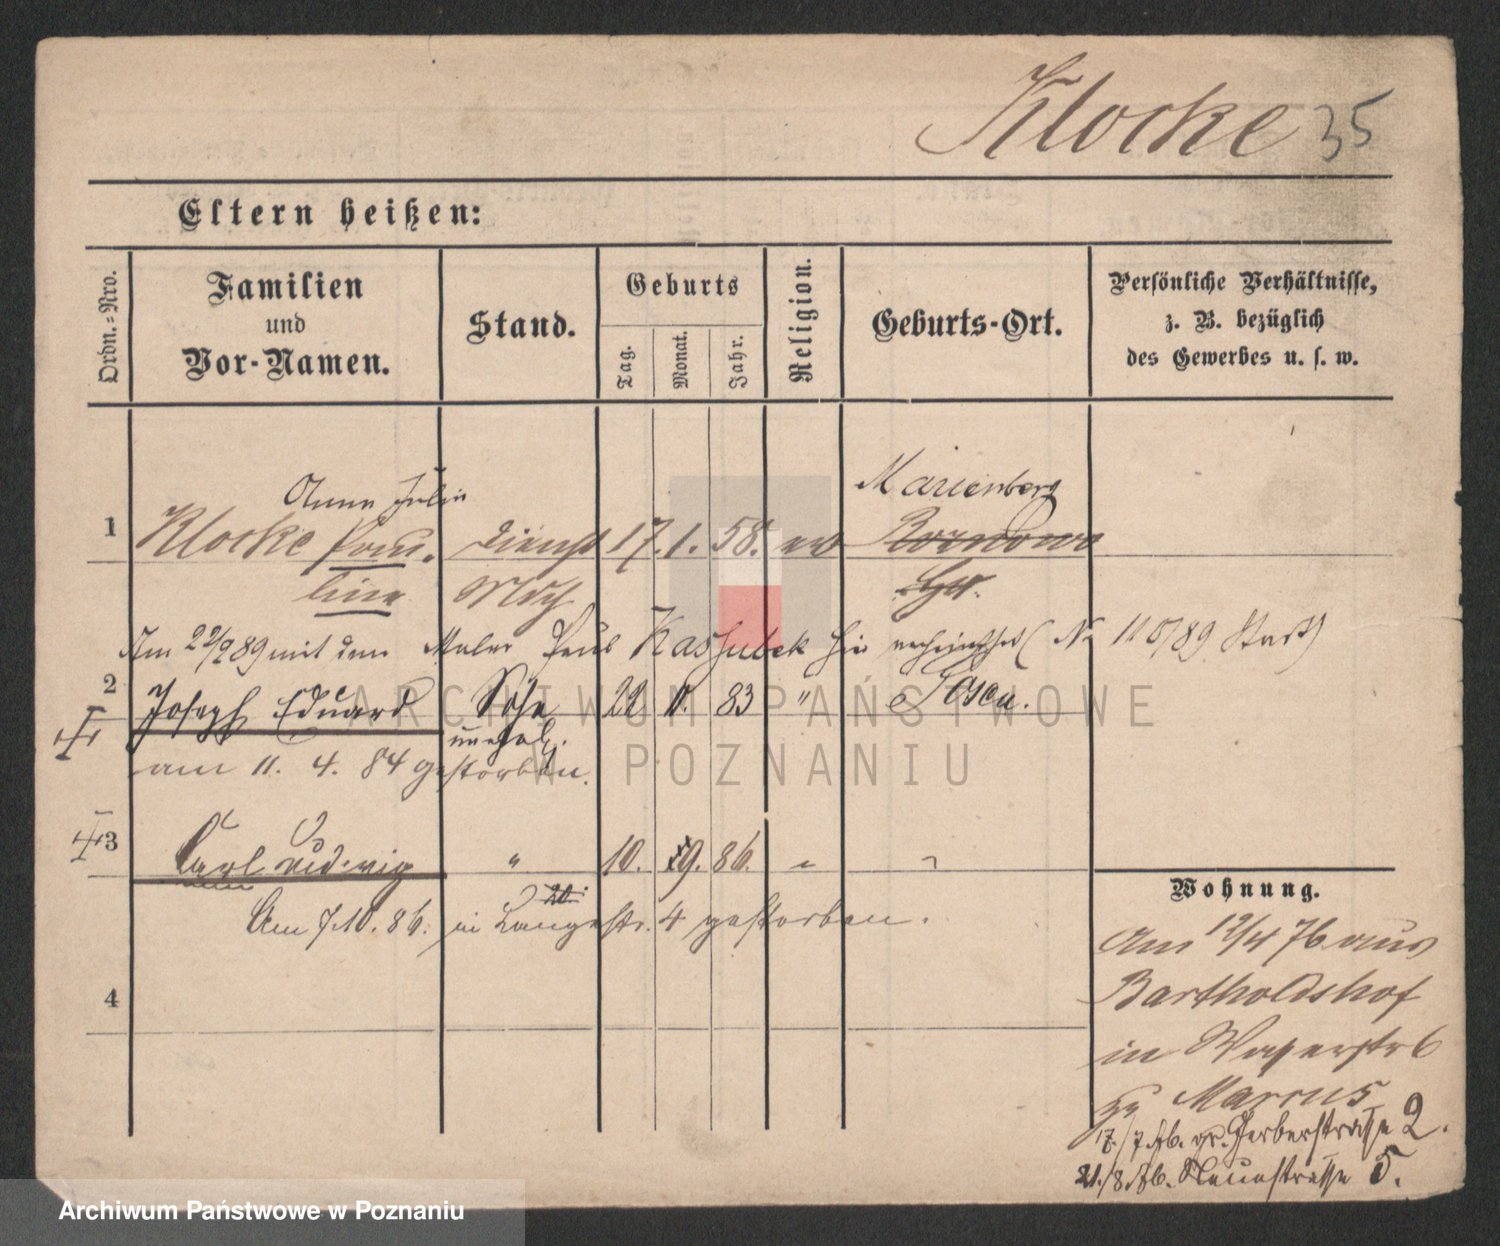 Klocke 35
Eltern heißen:
Ordn.-Nro.
Familien
und
Vor-Namen.
Stand.
Geburts
Tag.
Monat.
Jahr.
Religion.
Geburts-Ort.
Persönliche Verhältnisse,
z. B. bezüglich
des Gewerbes u. s. w.
Anna Julia
Marienberg
1 Klocke Pau- Dienst 17. 1. 58. ev
line Mdch
Am 22/2 89 mit dem Maler Paul Kashubek hier (No 110/89 Stat)
2 Joseph Eduard Sohn 22 11. 83 " Posen.
unehel.
am 11. 4. 84 gestorben.
3 Carl Ludwig " 10. 9. 86. " "
Am 7.10. 86. in Langestr. 4 gestorben.
4
Wohnung.
Am 12/4 76 aus
Bartholdshof
in Wasserstr 6
bei Marcus
17./7. gr. Gerberstrasse 2.
21./8. Neuestrasse 5.
ARCHIWUM PAŃSTWOWE
W POZNANIU
Archiwum Państwowe w Poznaniu